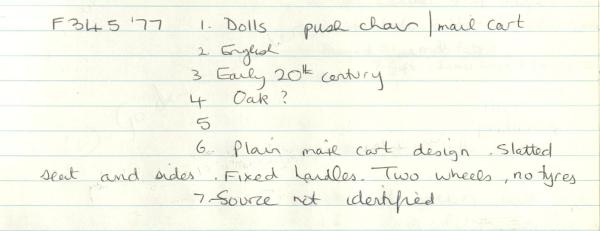 F345 '77 1. Dolls push chair / mail cart
2 English
3 Early 20th century
4 Oak ?
5
6. Plain mail cart design. Slatted
seat and sides. Fixed handles. Two wheels, no tyres
7. Source not identified